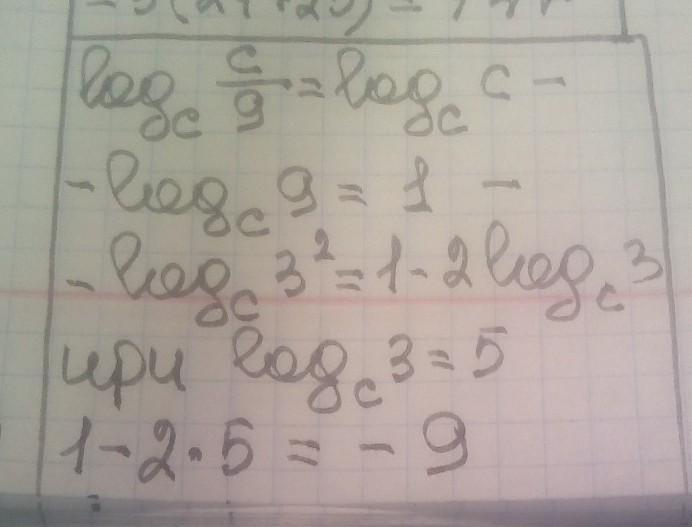 log_c c/9 = log_c c -
- log_c 9 = 1 -
- log_c 3² = 1 - 2 log_c 3
при log_c 3 = 5
1 - 2 · 5 = - 9